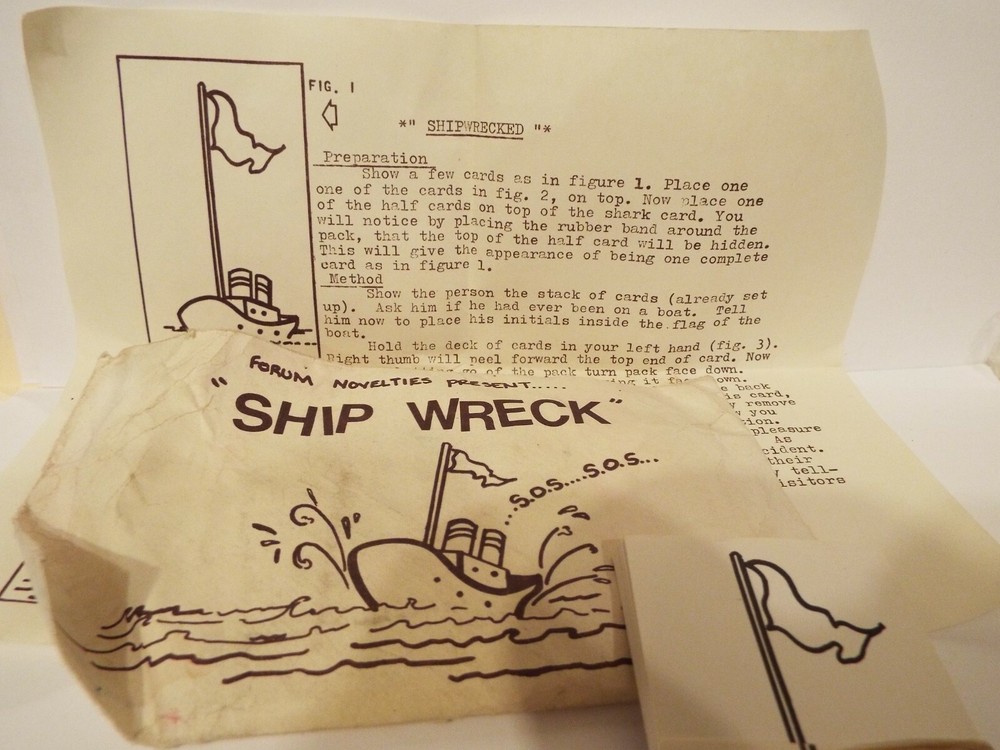 FIG. 1
*" SHIPWRECKED "*
Preparation
Show a few cards as in figure 1. Place one
one of the cards in fig. 2, on top. Now place one
of the half cards on top of the shark card. You
will notice by placing the rubber band around the
pack, that the top of the half card will be hidden.
This will give the appearance of being one complete
card as in figure 1.
Method
Show the person the stack of cards (already set
up). Ask him if he had ever been on a boat. Tell
him now to place his initials inside the flag of the
boat.
Hold the deck of cards in your left hand (fig. 3).
Right thumb will peel forward the top end of card. Now
go of the pack turn pack face down.
it own.
back
is card,
remove
you
pleasure
As
their
tell-
FORUM NOVELTIES PRESENT.....
"SHIP WRECK"
S.O.S....S.O.S...